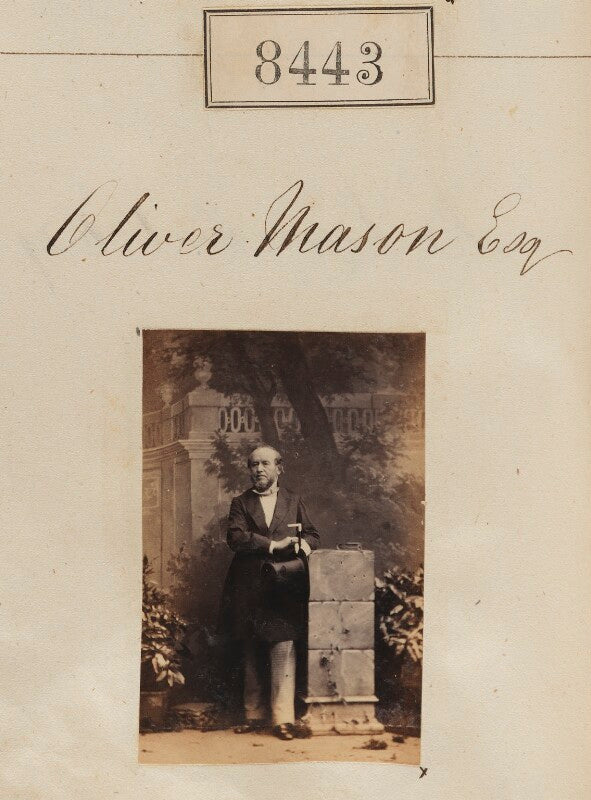 8443
Oliver Mason Esq